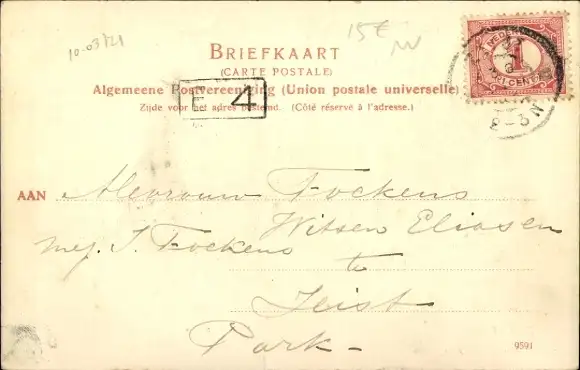 10-03/121
15E
BRIEFKAART
(CARTE POSTALE)
Algemeene Postvereeniging (Union postale universelle)
Zijde voor het adres bestemd. (Côté réservé à l'adresse.)
E 4
NEDERL
1
CENT
2-3N
AAN Mevrouw Fockens
Witsen Eliasen
Mej. J. Fockens
te
Zeist
Park-
9591